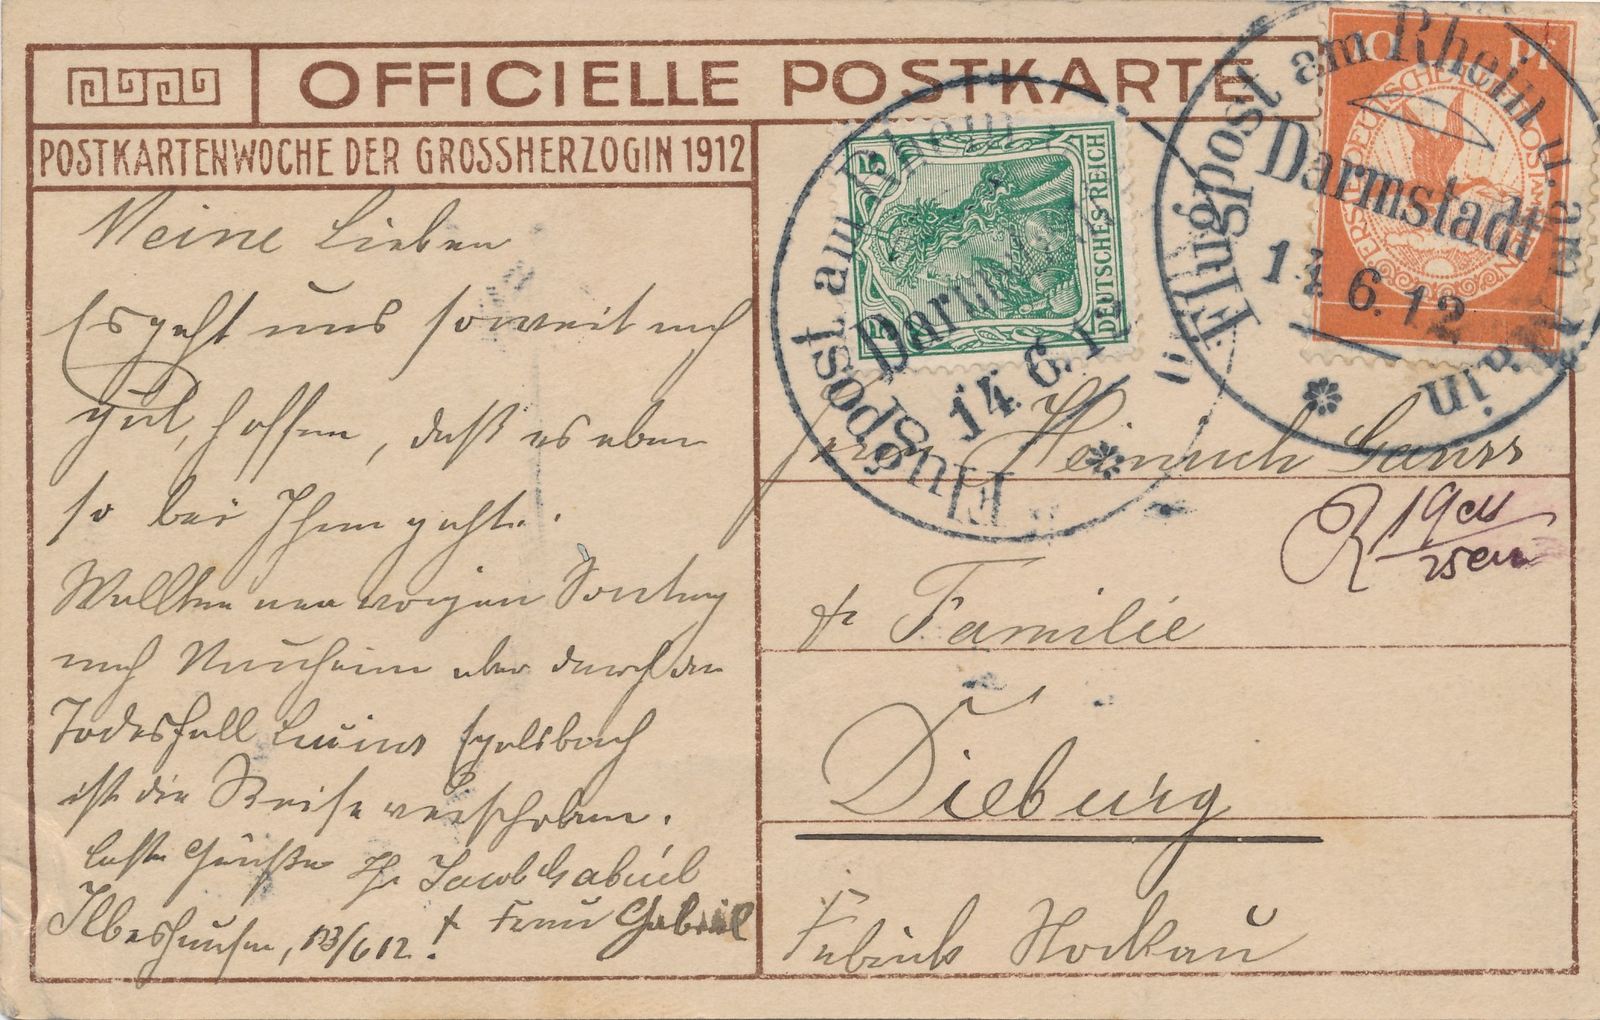 OFFICIELLE POSTKARTE
POSTKARTENWOCHE DER GROSSHERZOGIN 1912
Meine Lieben
Es geht uns soweit noch
gut, hoffen, daß es eben
so bei Ihnen geht.
Wollten am vorigen Sonntag
nach Mauheim aber durch den
Todesfall Egelsbach
ist die Reise verschoben.
beste Grüße Ihr Jacob Gabriel
Ilbeshausen, 13/6 12. + Frau Gabriel
5
DEUTSCHES REICH
5
Flugpost am Rhein
Darmstadt
14.6.12
10 Pf
Flugpost am Rhein u. am Main
Darmstadt
14.6.12
Heinrich
& Familie
Dieburg
Fabrik Stockau